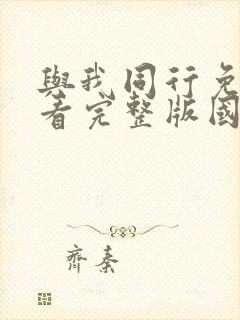 與我同行免
看完整版國
齊秦